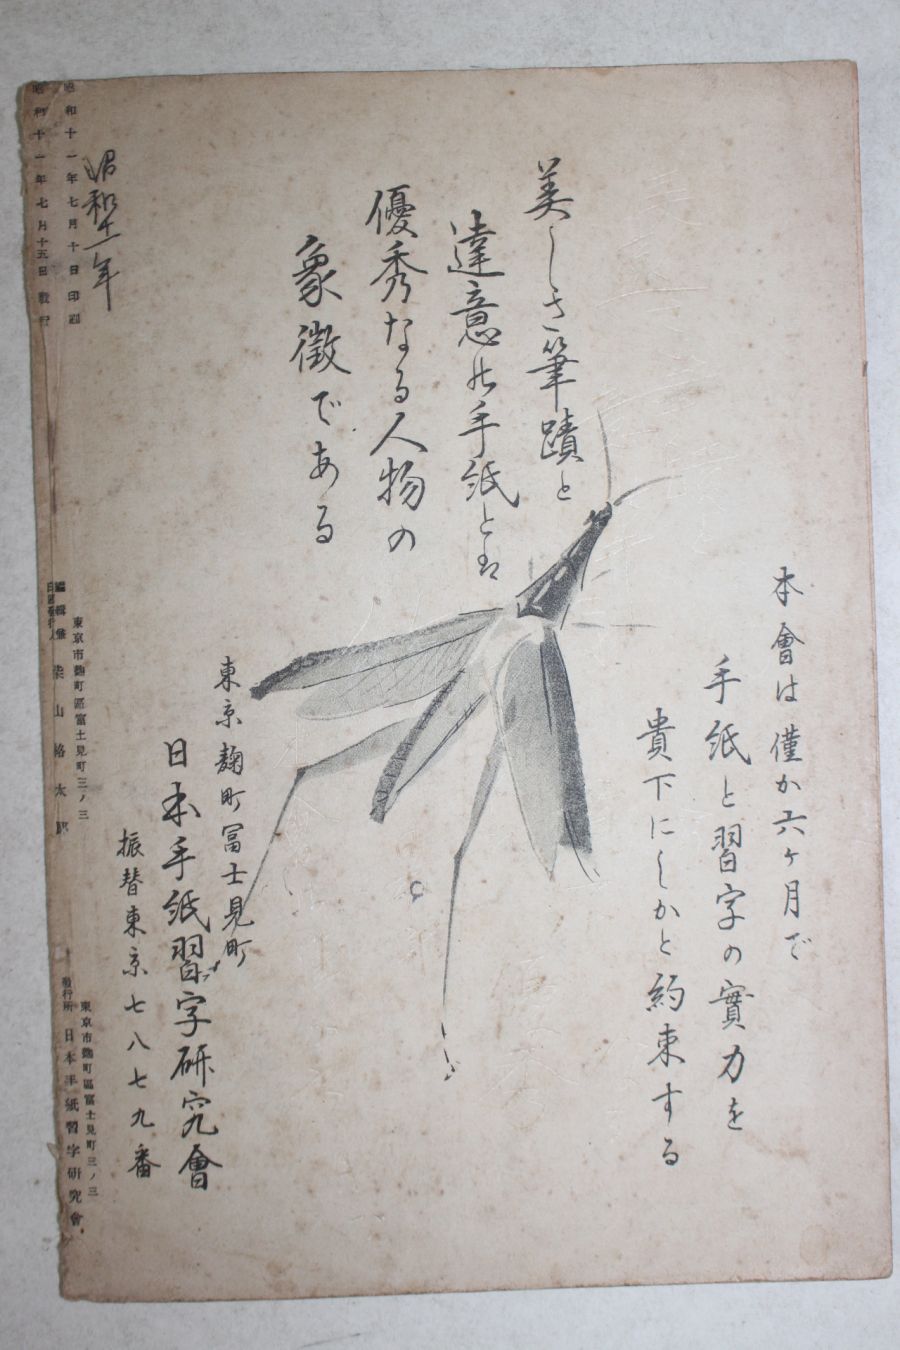 美しき筆蹟と
達意の手紙とは
優秀なる人物の
象徴である
本會は僅か六ヶ月で
手紙と習字の實力を
貴下にしかと約束する
東京麹町冨士見町
日本手紙習字研究會
振替東京七八七九番
昭和十一年
昭和十一年七月十日印刷
昭和十一年七月十五日發行
東京市麹町區富士見町三ノ三
編輯兼
染山
太郎
東京市麹町區富士見町三ノ三
發行所 日本手紙習字研究會